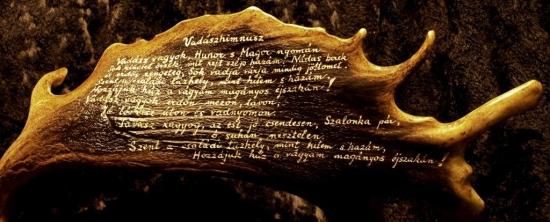 Vadászhimnusz
Vadász vagyok, Hunor s Magor nyomán
rejt szép hazám. Nádas berk
s erdő rengeteg, Sok vadja várja mindig jöttömet.
tűzhely, mint hitem s hazám,
Hozzájuk húz a vágyam magányos éjszakán!
Vadász vagyok erdőn mezőn, távon,
ülök és vadnyomon.
Tavasz ragyog, az est jő csendesen, Szalonka pár,
suhan nesztelen
Szent a családi tűzhely, mint hitem s hazám,
Hozzájuk húz a vágyam magányos éjszakán!